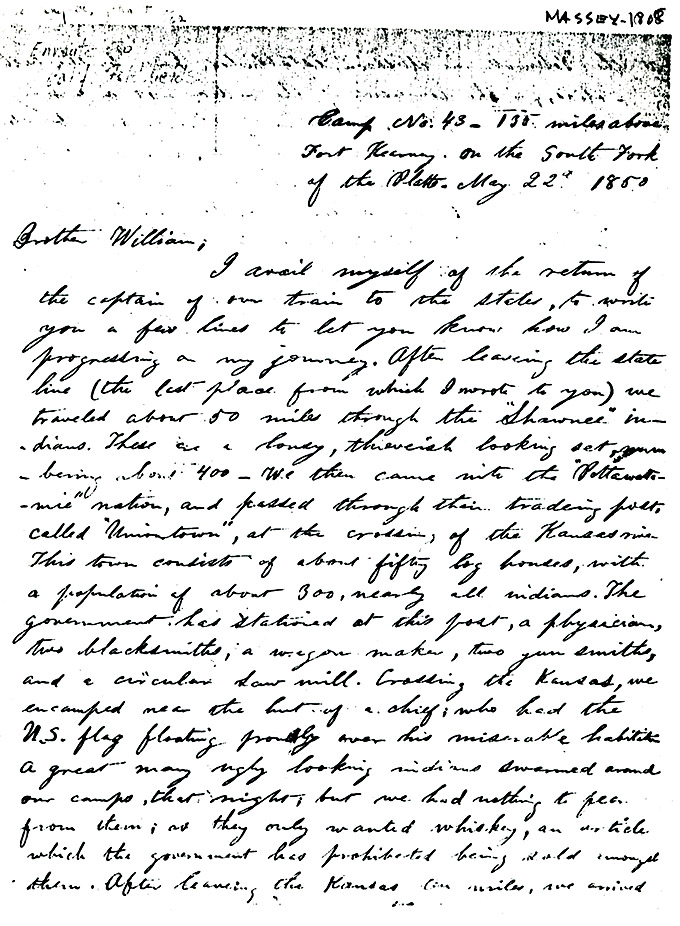 MASSEY-1808
Enroute to
Camp No. 43 - 135 miles above
Fort Kearney on the South Fork
of the Platte. May 22d 1850
Brother William;
I avail myself of the return of
the captain of our train to the states, to write
you a few lines to let you know how I am
progressing on my journey. After leaving the state
line (the last place from which I wrote to you) we
traveled about 50 miles through the "Shawnee" in-
-dians. These are a lousy, thieveish looking set, num
-bering about 400 - We then came into the "Pottawato-
-mie" nation, and passed through their trading post,
called "Uniontown", at the crossing of the Kansas river
This town consists of about fifty log houses, with
a population of about 300, nearly all indians. The
government has stationed at this post, a physician,
two blacksmiths, a wagon maker, two gun smiths,
and a circular saw mill. Crossing the Kansas, we
encamped near the hut of a chief; who had the
U.S. flag floating proudly over his miserable habitation
A great many ugly looking indians swarmed around
our camps, that night; but we had nothing to fear
from them; as they only wanted whiskey, an article
which the government has prohibited being sold amongst
them. After leaving the Kansas ten miles, we arrived